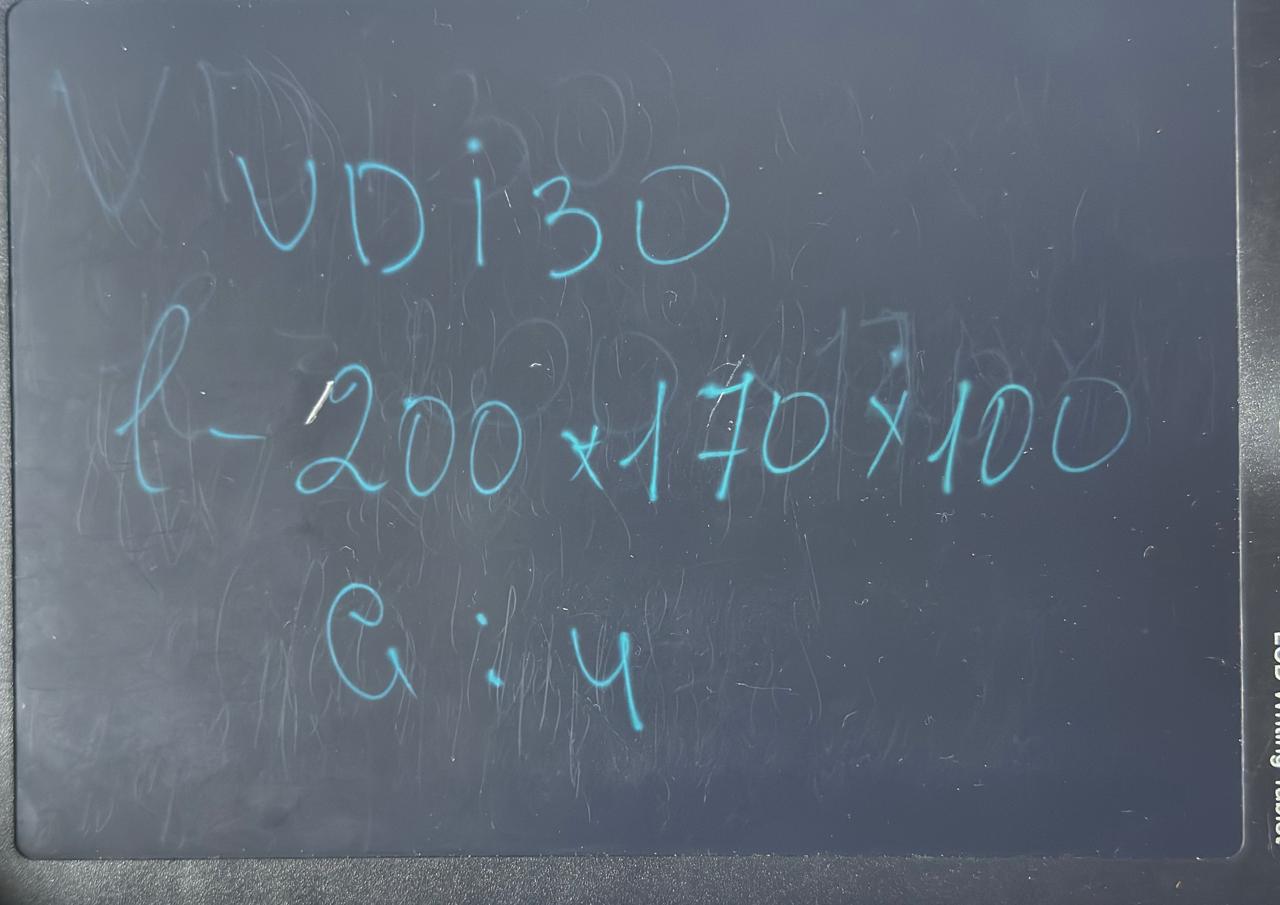 VDi30
l-200x170x100
G:4
LCD Writing Tablet